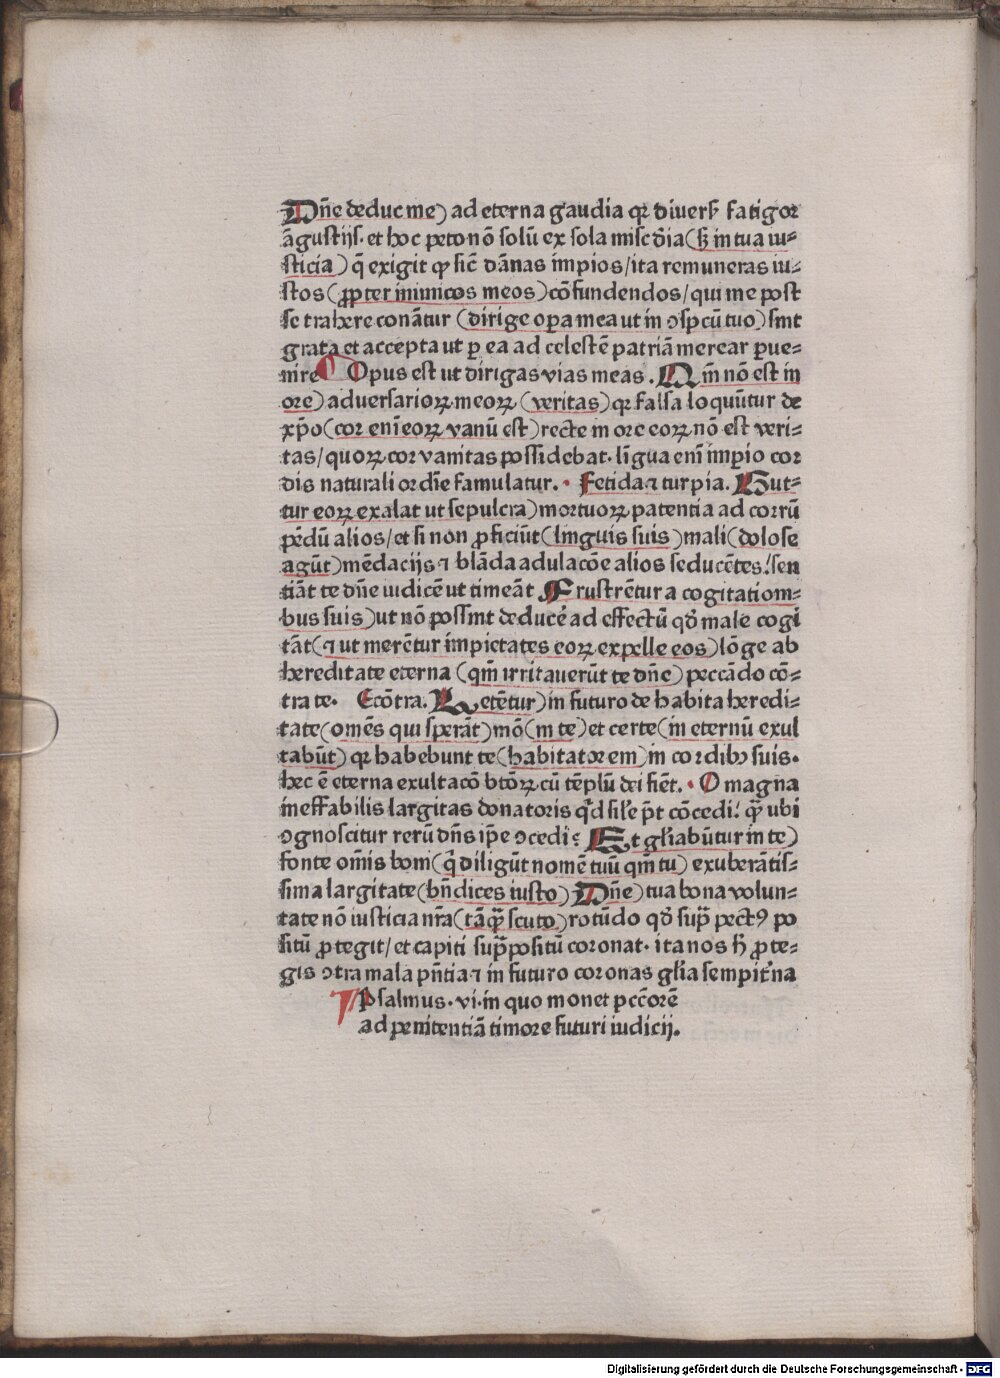 Dn̄e deduc me) ad eterna gaudia qꝛ diuersꝭ fatigor
āgustijs. et hoc peto nō solū ex sola misc̄dia (sꝫ in tua iu⸗
sticia) q̄ exigit ꝙ sic̄ dānas impios/ita remuneras iu⸗
stos (ꝓpter inimicos meos) cōfundendos/qui me post
se trahere conātur (dirige oꝑa mea ut in ↄspc̄u tuo) sint
grata et accepta ut ꝑ ea ad celestē patriā merear ꝑue⸗
nire Opus est ut dirigas vias meas. Qm̄ nō est in
ore) aduersarioꝝ meoꝝ (veritas) qꝛ falsa loquūtur de
xp̄o (cor eni̅ eoꝝ vanū est) recte in ore eoꝝ nō est veri⸗
tas/quoꝝ cor vanitas possidebat. lingua eni̅ imꝑio cor
dis naturali ordi̅e famulatur. Fetida ⁊ turpia. Gut⸗
tur eoꝝ exalat ut sepulcra) mortuoꝝ patentia ad corrū
pēdū alios/et si non ꝓficiūt (linguis suis) mali (dolose
agūt) mēdacijs ⁊ blāda adulacōe alios seducētes! sen
tiāt te dn̄e iudicē ut timeāt Frustrētur a cogitationi⸗
bus suis) ut nō possint deducē ad effectū qd̓ male cogi
tāt (⁊ ut merētur impietates eoꝝ expelle eos) lōge ab
hereditate eterna (qm̄ irritauerūt te dn̄e) peccādo cō⸗
tra te. Ecōtra. Letētur) in futuro de habita heredi⸗
tate (omēs qui sperāt) mō (in te) et certe (in eternū exul
tabūt) qꝛ habebunt te (habitatorem) in cordibꝰ suis.
hec ē eterna exultacō btōꝝ cū tēplū dei fiēt. O magna
ineffabilis largitas donatoris qd̓ sile p̄t cōcedi! qꝫ ubi
ↄgnoscitur rerū dn̄s ip̄e ↄcedit̉ Et gl̓iabūtur in te)
fonte om̄is boni (q̄ diligūt nomē tuū qm̄ tu) exuberātis⸗
sima largitate (bn̄dices iusto) Dn̄e) tua bona volun⸗
tate nō iusticia nr̄a (tāqꝫ scuto) rotūdo qd̓ suꝑ pectꝰ po
sitū ꝓtegit/et capiti suꝑpositū coronat. ita nos h̓ ꝓte⸗
gis ↄtra mala pn̄tia ⁊ in futuro coronas gl̓ia sempit̓na
Psalmus. vi. in quo monet pcc̄orē
ad penitentiā timore futuri iudicij.
Digitalisierung gefördert durch die Deutsche Forschungsgemeinschaft - DFG